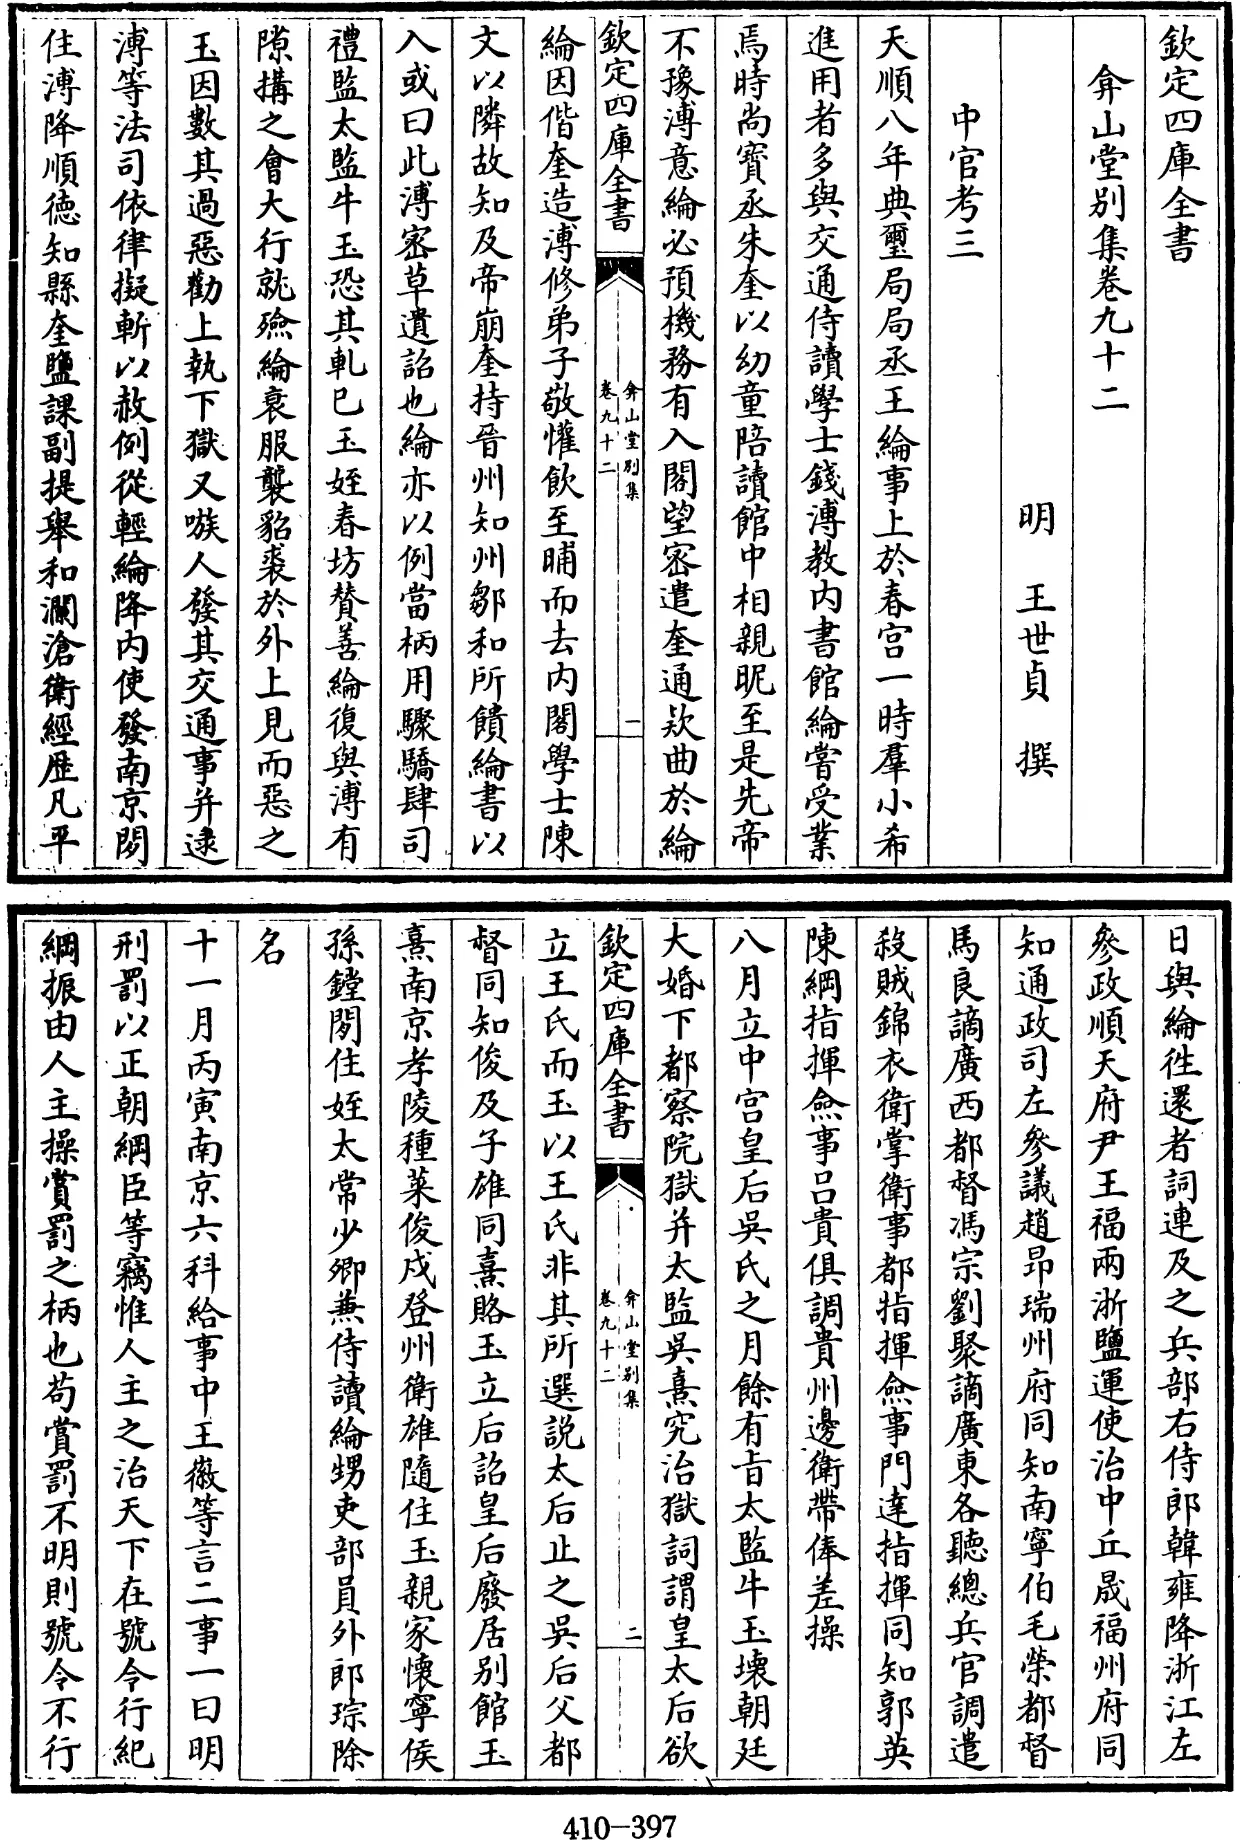 欽定四庫全書
弇山堂別集卷九十二
明　王世貞　撰
中官考三
天順八年典璽局局丞王綸事上於春宮一時羣小希
進用者多與交通侍讀學士錢溥教內書館綸嘗受業
焉時尚寶丞朱奎以幼童陪讀館中相親昵至是先帝
不豫溥意綸必預機務有入閣望密遣奎通欵曲於綸
欽定四庫全書
弇山堂別集
卷九十二
一
綸因偕奎造溥修弟子敬懽飲至晡而去內閣學士陳
文以隣故知及帝崩奎持晉州知州鄒和所饋綸書以
入或曰此溥密草遺詔也綸亦以例當柄用驟驕肆司
禮監太監牛玉恐其軋已玉姪春坊贊善綸復與溥有
隙搆之會大行就殮綸衰服襲貂裘於外上見而惡之
玉因數其過惡勸上執下獄又嗾人發其交通事并逮
溥等法司依律擬斬以赦例從輕綸降內使發南京閒
住溥降順德知縣奎鹽課副提舉和瀾滄衛經歷凡平
日與綸徃還者詞連及之兵部右侍郎韓雍降浙江左
參政順天府尹王福兩浙鹽運使治中丘晟福州府同
知通政司左參議趙昂瑞州府同知南寧伯毛榮都督
馬良謫廣西都督馮宗劉聚謫廣東各聽總兵官調遣
殺賊錦衣衛掌衛事都指揮僉事門達指揮同知郭英
陳綱指揮僉事呂貴俱調貴州邊衛帶俸差操
八月立中宮皇后吳氏之月餘有旨太監牛玉壞朝廷
大婚下都察院獄并太監吳熹究治獄詞謂皇太后欲
欽定四庫全書
弇山堂別集
卷九十二
二
立王氏而玉以王氏非其所選説太后止之吳后父都
督同知俊及子雄同熹賂玉立后詔皇后廢居別館玉
熹南京孝陵種菜俊戍登州衛雄隨住玉親家懷寧侯
孫鏜閒住姪太常少卿兼侍讀綸甥吏部員外郎琮除
名
十一月丙寅南京六科給事中王徽等言二事一曰明
刑罰以正朝綱臣等竊惟人主之治天下在號令行紀
綱振由人主操賞罰之柄也苟賞罰不明則號令不行
410-397